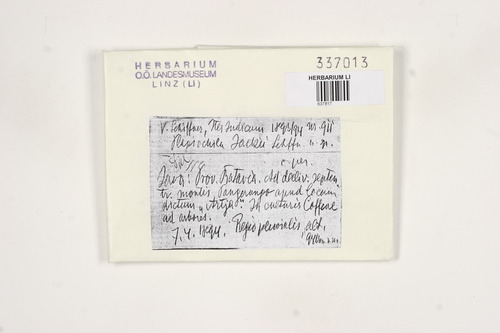 HERBARIUM
O.Ö. LANDESMUSEUM
LINZ (LI)
337013
HERBARIUM LI
V. Schiffner, Iter Indicum 1893/94 Nr. 911
Plagiochila Jackii Schffn. n. sp.
c. per.
Java: Prov. Batavia. Ad decliv. septen
tr. montis Pangerango apud locum
dictum „Artja“. In culturis Coffeae
ad arbores.
7. 4. 1894. Regio pluvialis, alt.